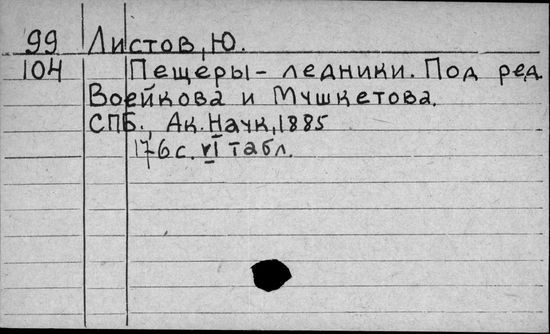 99 Листов, Ю.
104 Пещеры - ледники. Под ред.
Воейкова и Мушкетова.
СПБ., Ак. Наук, 1885
176 с. VI табл.